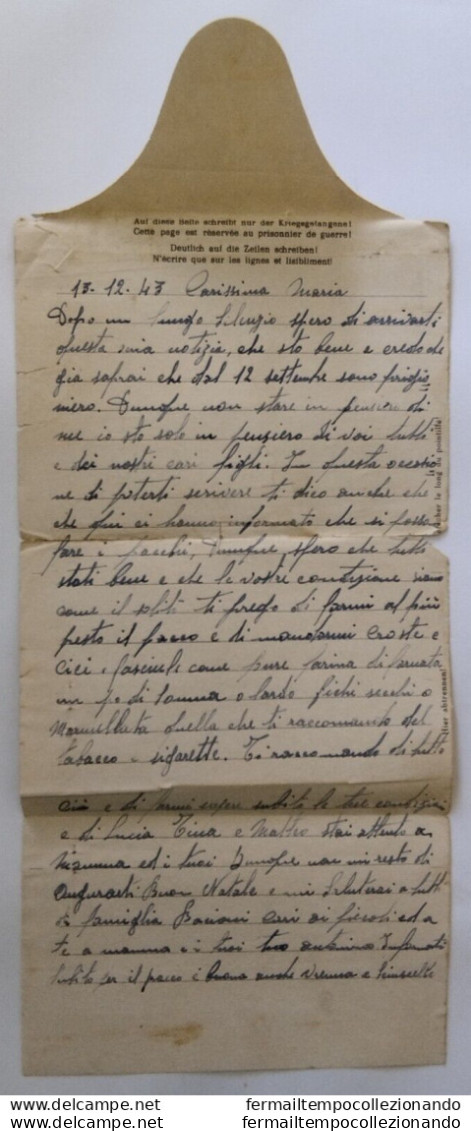 Auf diese Seite schreibt nur der Kriegsgefangene!
Cette page est réservée au prisonnier de guerre!
Deutlich auf die Zeilen schreiben!
N'écrire que sur les lignes et lisiblement!
13-12-43 Carissima Maria
Dopo un lungo silenzio spero di arrivarti
questa mia notizia, che sto bene e credo che
gia saprai che dal 12 settembre sono prigio
niero. Dunque non stare in pensiero di
me io sto solo in pensiero di voi tutti
e dei nostri cari figli. In questa occasio
ne di poterti scrivere ti dico anche che
che qui ci hanno informato che si possa
fare i pacchi, dunque spero che tutti
stati bene e che le vostre condizione siano
come il soliti ti prego di farmi al più
presto il pacco e di mandarmi croste e
cici e fascuele come pure farina di
un po di lardo fichi secchi o
Marmellata quella che ti raccomando del
tabacco e sigarette. Ti raccomando di tutto
ciò e di farmi sapere subito le tue condizioni
e di Lucia Tina e Matteo stai attento a
Mamma ed i tuoi dunque non mi resto di
augurarti Buon Natale e mi saluterai a tutti
di famiglia Bacioni cari ai piccoli ed a
te a mamma e i tuoi tuo
subito per il pacco è buono anche
licher le long du pointillé
Hier abtrennen!
fermailtempocollezionando fermailtempocollezionando
fermailtempocollezionando fermailtempocollezionando